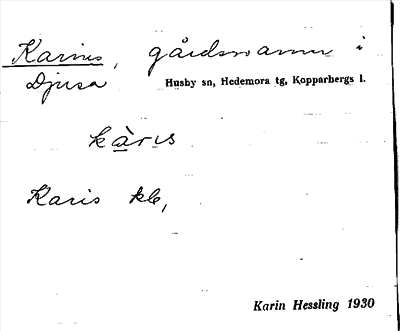 Karins, gårdsnamn i
Djusa Husby sn, Hedemora tg, Kopparbergs l.
kàrıs
Karis kb,
Karin Hessling 1930